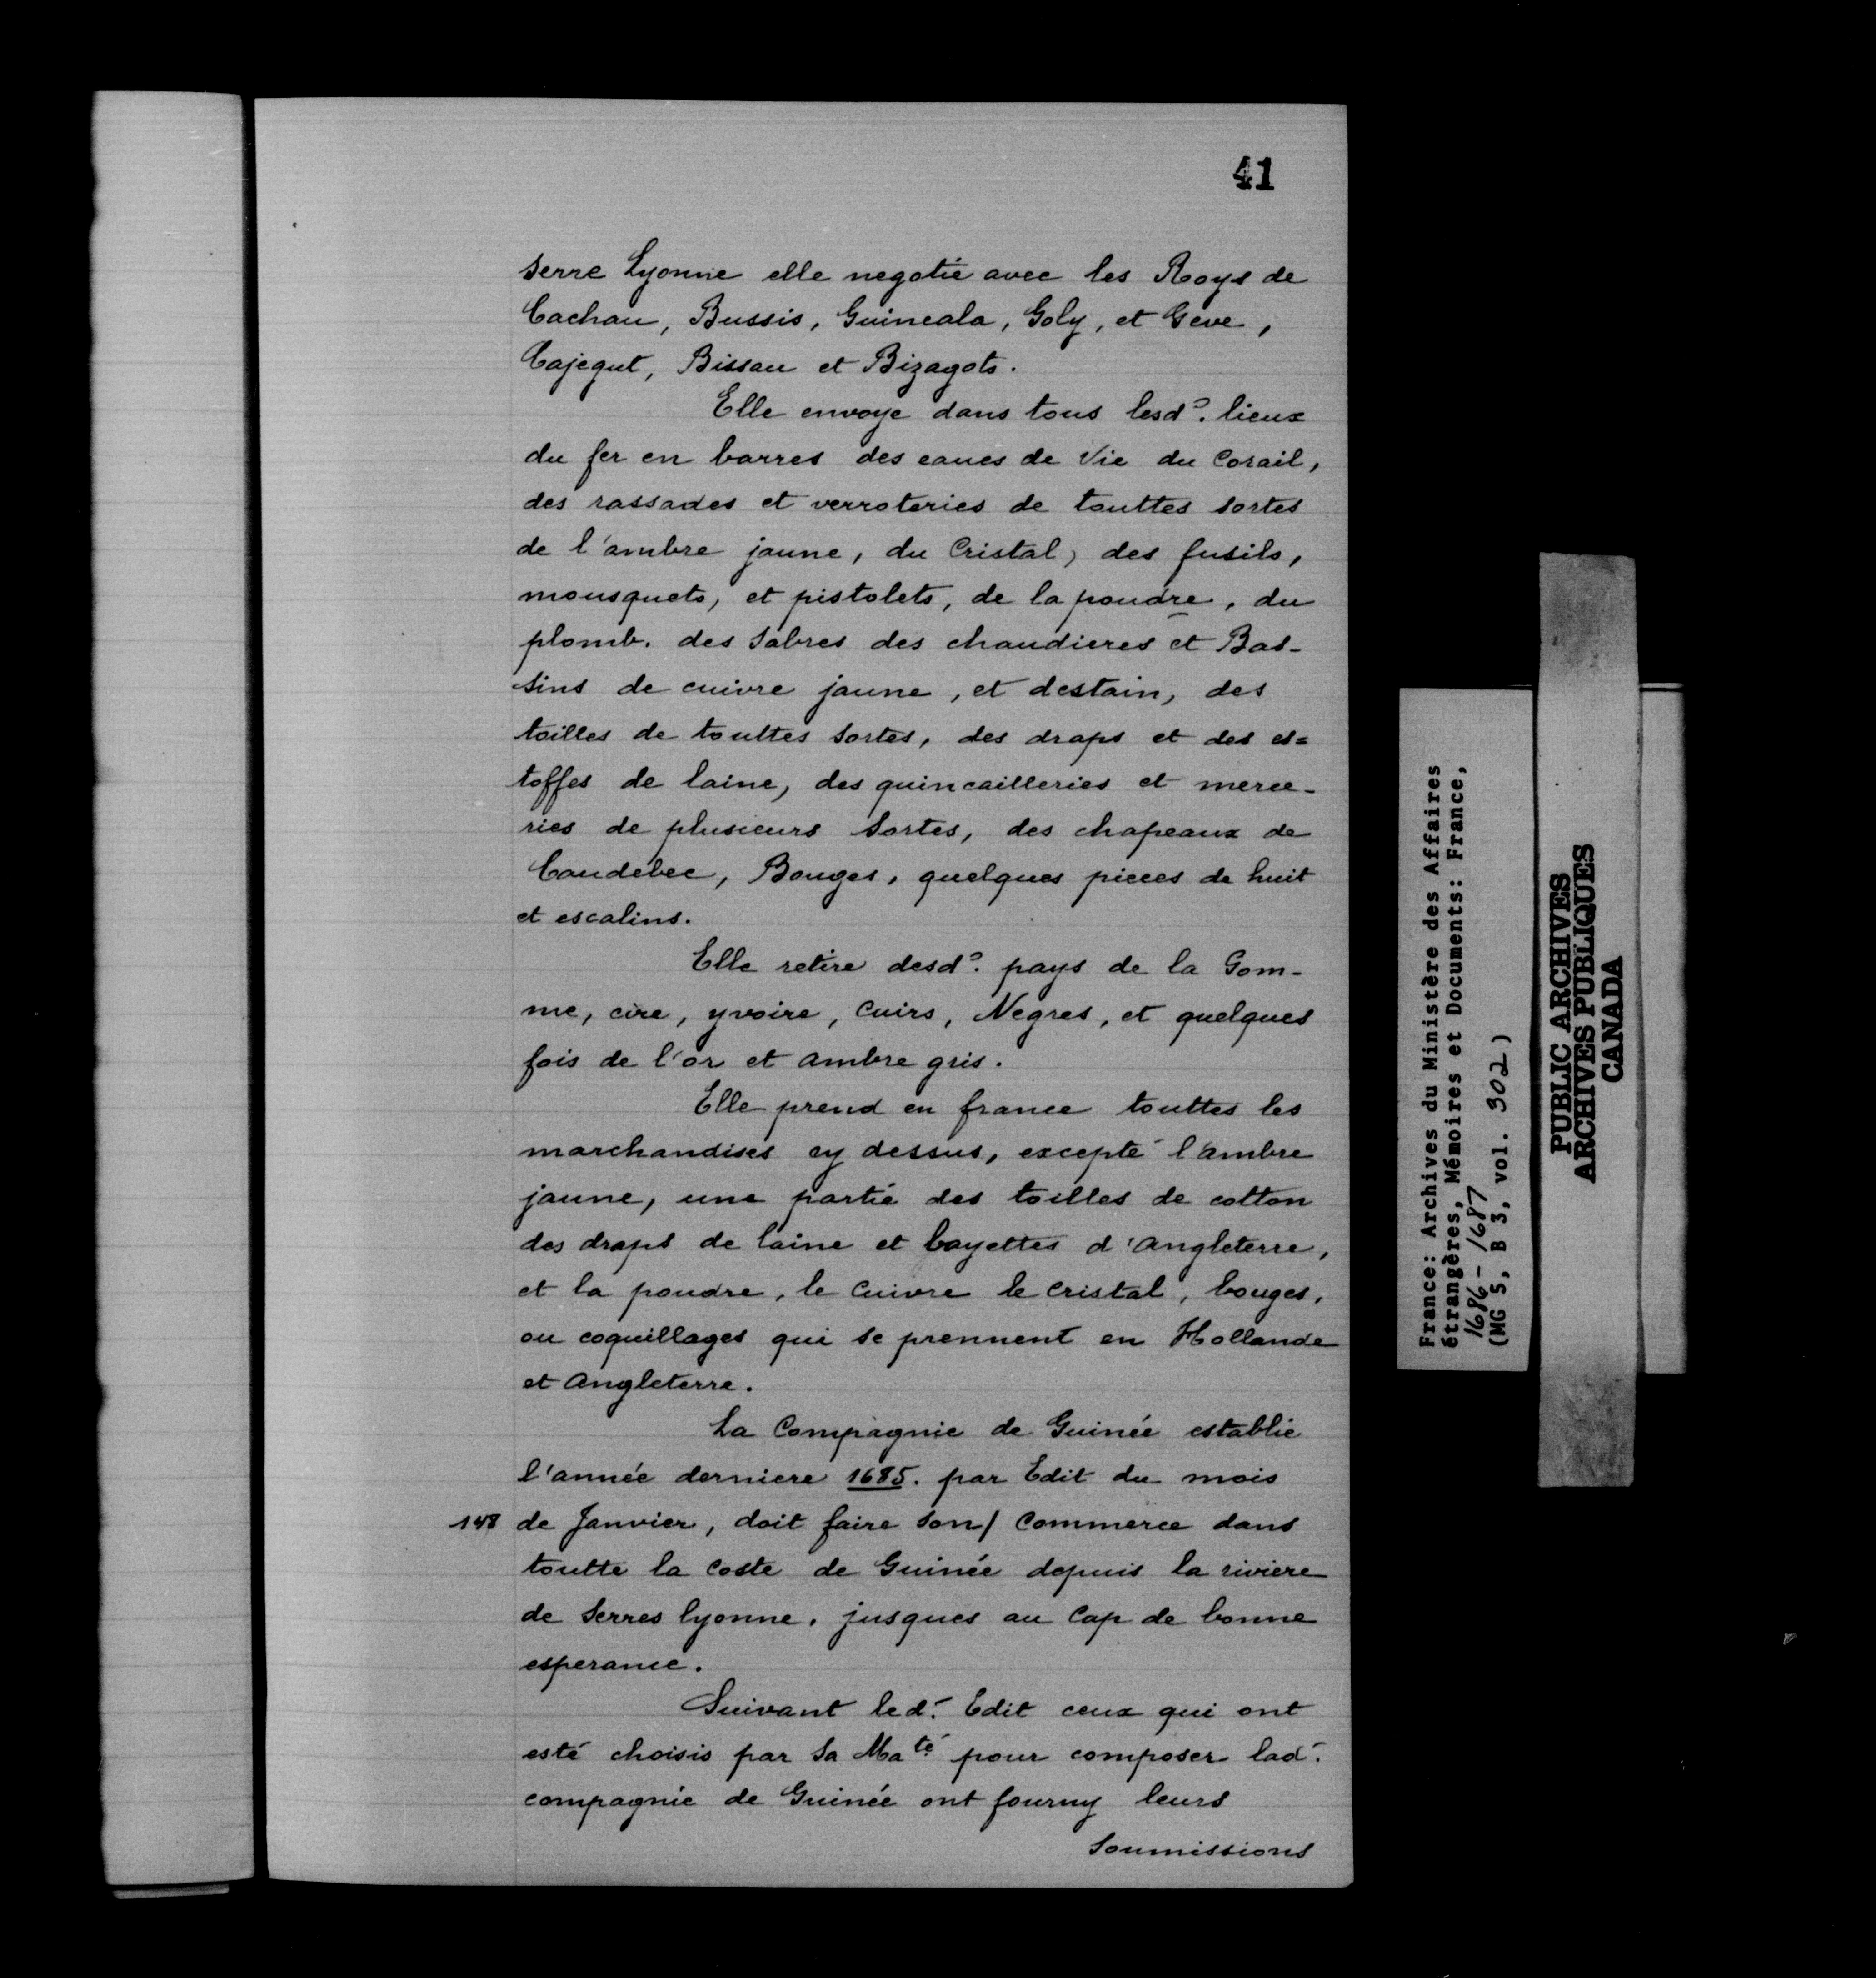 41
serre Lyonne elle negotie avec les Roys de
Cachau, Bussis, Guineala, Goly, et Geve,
Cajegut, Bissau et Bizagots.
Elle envoye dans tous lesd?. lieux
du fer en barres des eaues de Vie du Corail,
des rassades et verroteries de touttes sortes
de l'ambre jaune, du Cristal, des fusils,
mousquets, et pistolets, de la poudre, du
plomb. des Sabres des chaudieres et Bas-
sins de cuivre jaune, et destain, des
toilles de touttes sortes, des draps et des es=
toffes de laine, des quincailleries et merce-
ries de plusieurs sortes, des chapeaux de
Caudebec, Bouges, quelques pieces de huit
et escalins.
Elle retire desd?. pays de la Gom-
me, cire, yvoire, Cuirs, Negres, et quelques
fois de l'or et ambre gris.
Elle prend en france touttes les
marchandises cy dessus, excepté l'ambre
jaune, une partie des toilles de cotton
des draps de laine et bayettes d'Angleterre,
et la poudre, le Cuivre le Cristal, bouges,
ou coquillages qui se prennent en Hollande
et Angleterre.
La Compagnie de Guinée establie
l'année derniere 1685. par Edit du mois
148 de Janvier, doit faire son/ Commerce dans
toutte la Coste de Guinée depuis la riviere
de Serres lyonne, jusques au Cap de bonne
esperance.
Suivant led. Edit ceux qui ont
esté choisis par Sa Maté pour composer lad.
compagnie de Guinée ont fourny leurs
Soumissions
France: Archives du Ministère des Affaires
étrangères, Mémoires et Documents: France,
1686-1687
(MG 5, B 3, vol. 302)
PUBLIC ARCHIVES
ARCHIVES PUBLIQUES
CANADA